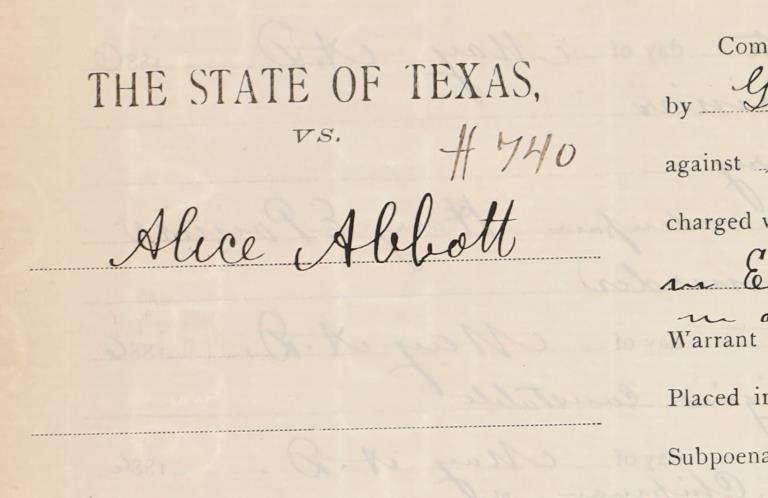 THE STATE OF TEXAS,
VS.
# 740
Alice Abbott
Com
by G
against
charged
in E
in
Warrant
Placed in
Subpoena